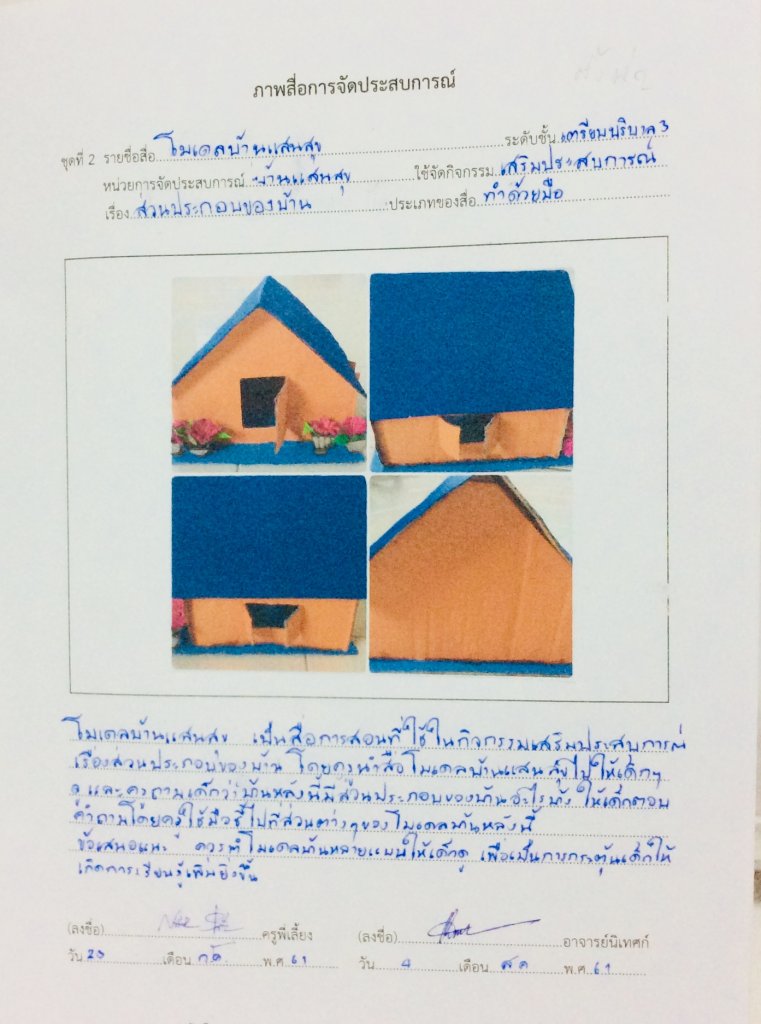 ภาพสื่อการจัดประสบการณ์
ชุดที่ 2 รายชื่อสื่อ โมเดลบ้านแสนสุข ระดับชั้น เตรียมอนุบาล 3
หน่วยการจัดประสบการณ์ บ้านแสนสุข ใช้จัดกิจกรรม เสริมประสบการณ์
เรื่อง ส่วนประกอบของบ้าน ประเภทของสื่อ ทำด้วยมือ
โมเดลบ้านแสนสุข เป็นสื่อการสอนที่ใช้ในกิจกรรมเสริมประสบการณ์
เรื่องส่วนประกอบของบ้าน โดยครูนำสื่อโมเดลบ้านแสนสุขไปให้เด็กๆ
ดูและครูถามเด็กว่าบ้านหลังนี้มีส่วนประกอบของบ้านอะไรบ้าง ให้เด็กตอบ
คำถามโดยครูใช้มือชี้ไปที่ส่วนต่างๆของโมเดลบ้านหลังนี้
ข้อเสนอแนะ ควรทำโมเดลบ้านหลายแบบให้เด็กดู เพื่อเป็นการกระตุ้นเด็กให้
เกิดการเรียนรู้เพิ่มยิ่งขึ้น
(ลงชื่อ) ครูพี่เลี้ยง (ลงชื่อ) อาจารย์นิเทศก์
วัน 23 เดือน กค. พ.ศ. 61 วัน 4 เดือน สค พ.ศ. 61